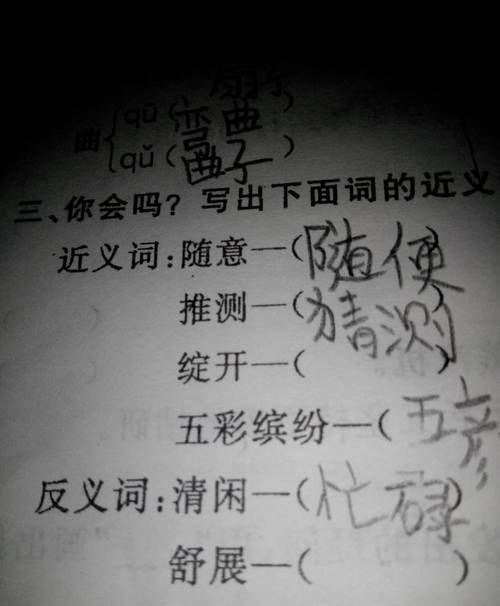 扇子
曲{qū(弯曲)
qǔ(曲子)
三、你会吗？写出下面词的近义
近义词:随意—(随便
推测—(猜测)
绽开—( )
五彩缤纷—(五彦
反义词:清闲—(忙碌)
舒展—( )